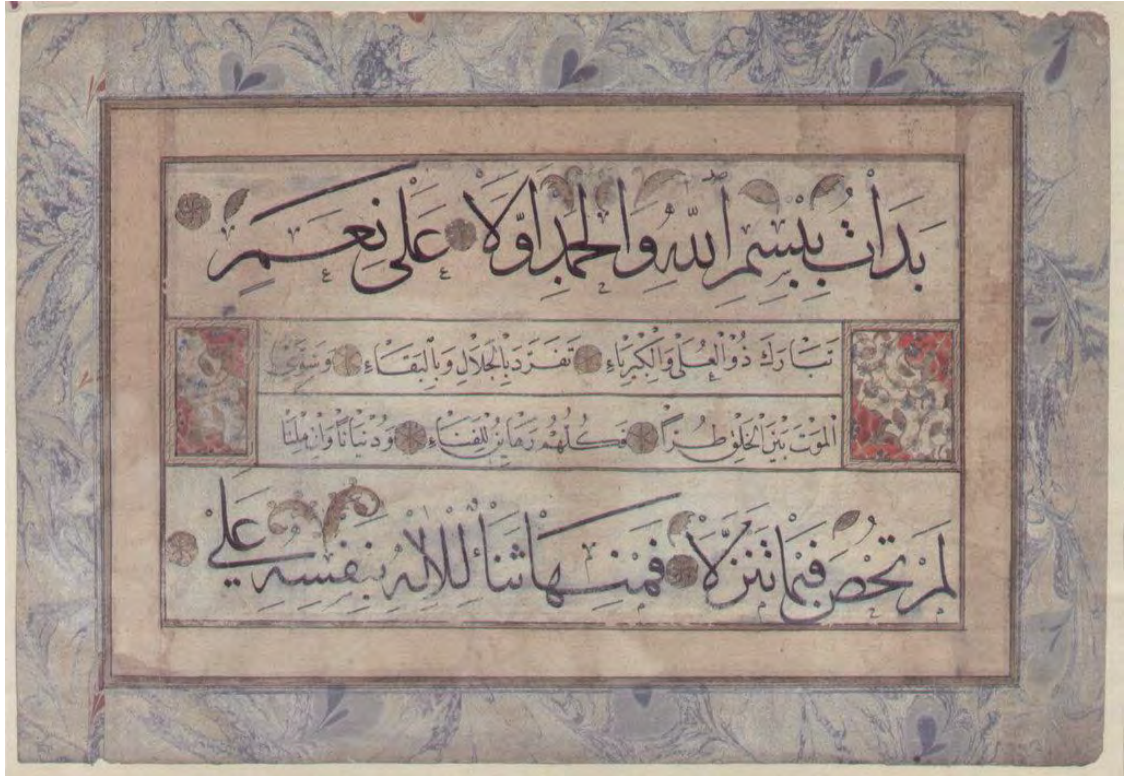 بَدَأْتُ بِبِسْمِ اللهِ وَالْحَمْدِ أَوَّلًا عَلَى نِعَمٍ
تَبَارَكَ ذُو الْعُلَى وَالْكِبْرِيَاءِ تَفَرَّدَ بِالْجَلَالِ وَبِالْبَقَاءِ وَسَوَّى
الْمَوْتَ بَيْنَ الْخَلْقِ طُرًّا فَكُلُّهُمْ رَهَائِنُ لِلْفَنَاءِ وَدُنْيَانَا وَإِنْ مِلْنَا
لَمْ تُحْصَ فِيمَا تَنَزَّلَا فَمِنْهَا ثَنَاءُ لِلْإِلَهِ بِنَفْسِهِ عَلَى